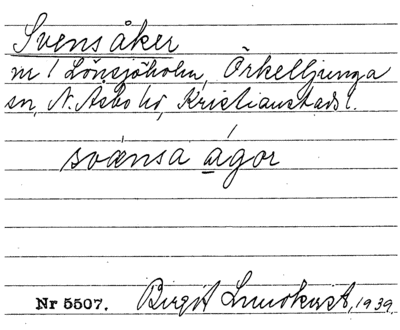 Svensåker
m / Lönsjöholm, Örkelljunga
sn, N. Åsbo hd, Kristianstads l.
svænsa ågor
Nr 5507. Birgit Lundkvist, 1939.